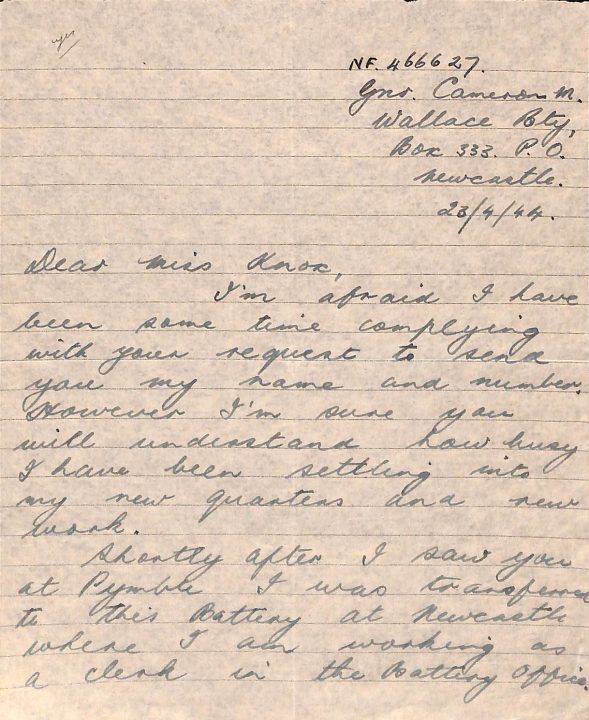 yes
NF. 466627.
Gnr. Cameron M.
Wallace Bty,
Box 333. P. O.
Newcastle.
23/4/44.
Dear Miss Knox,
I'm afraid I have
been some time complying
with your request to send
you my name and number.
However I'm sure you
will understand how busy
I have been settling into
my new quarters and new
work.
Shortly after I saw you
at Pymble I was transferred
to this Battery at Newcastle
where I am working as
a clerk in the Battery Office.